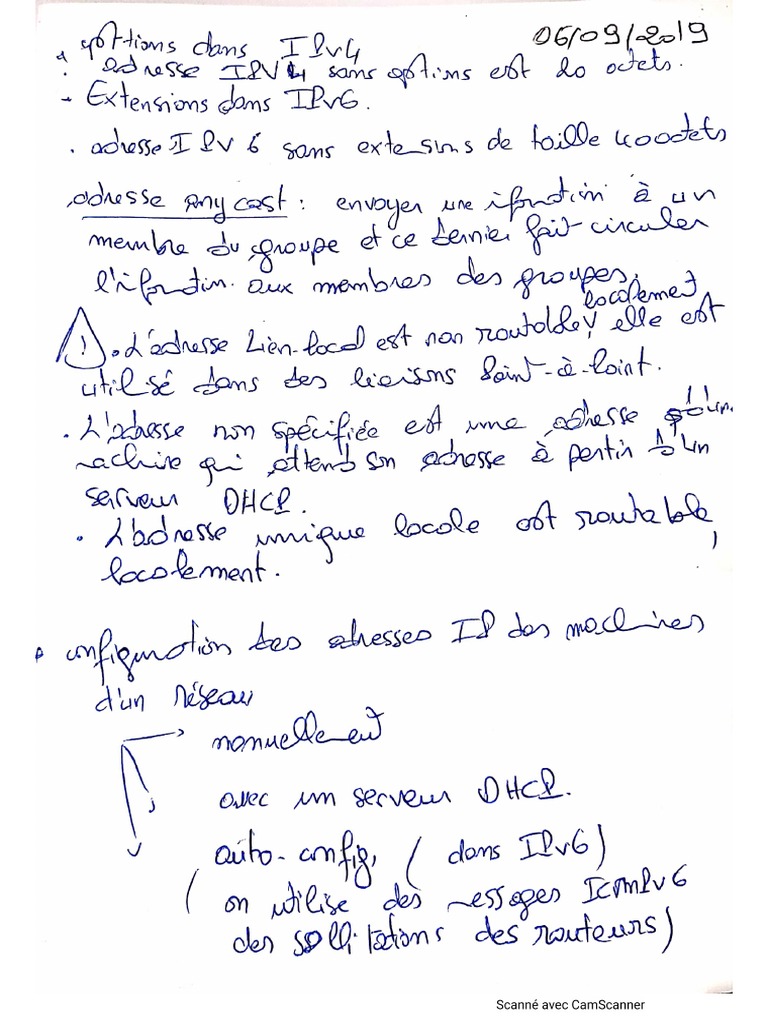 06/09/2019
options dans IPv4
adresse IPV4 sans options est 20 octets.
- Extensions dans IPv6.
. adresse IPv6 sans extensions de taille 40 octets
adresse Anycast : envoyer une ifontion à un
membre du groupe et ce dernier fait circuler
l'ifontin. aux membres des groupes.
! . L'adresse Lien-local est non routable localement, elle est
utilisé dans des liaisons Point-à-Point.
. L'adresse non spécifiée est une adresse d'un
machine qui attend son adresse à partir d'un
serveur DHCP.
. L'adresse unique locale est routable,
localement.
configuration des adresses IP des machines
d'un réseau
manuellement
avec un serveur DHCP.
auto-config, ( dans IPv6)
( on utilise des messages ICMPv6
des sollitations des routeurs)
Scanné avec CamScanner